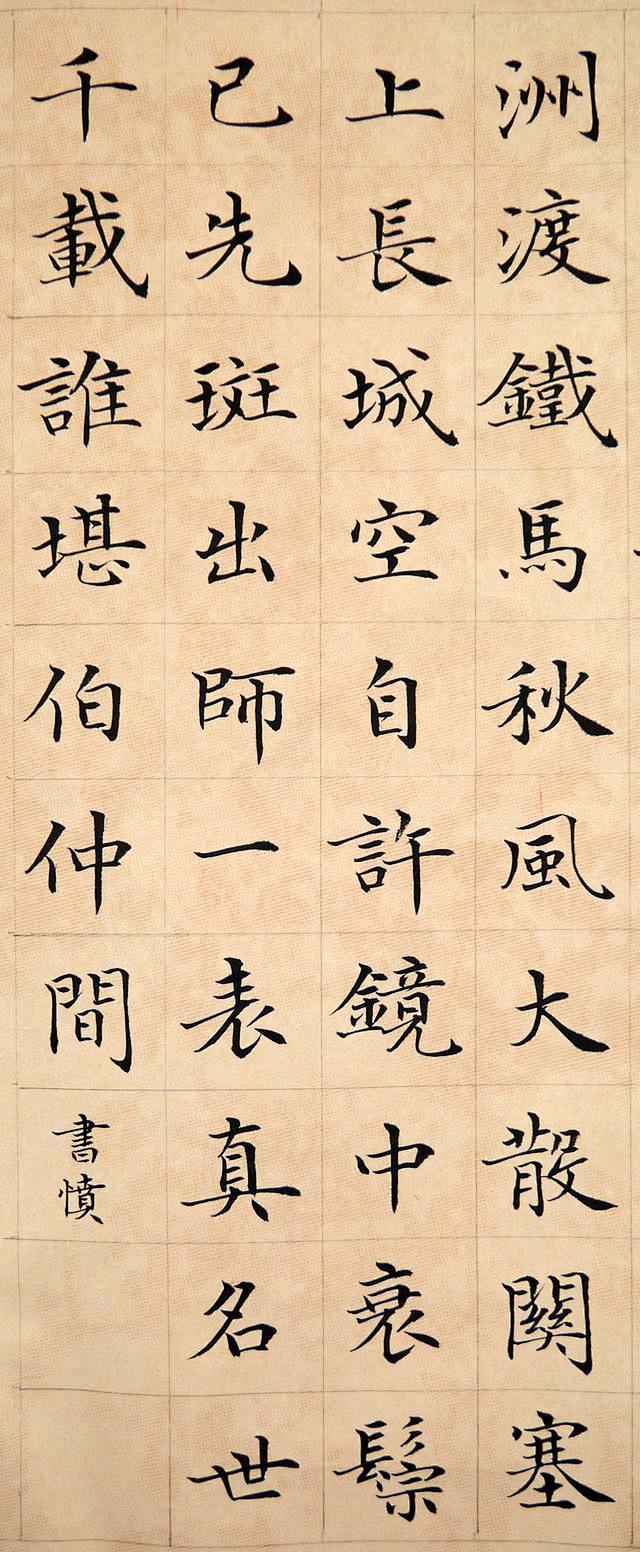 洲渡鐵馬秋風大散關塞
上長城空自許鏡中衰鬃
已先斑出師一表真名世
千載誰堪伯仲間
書憤